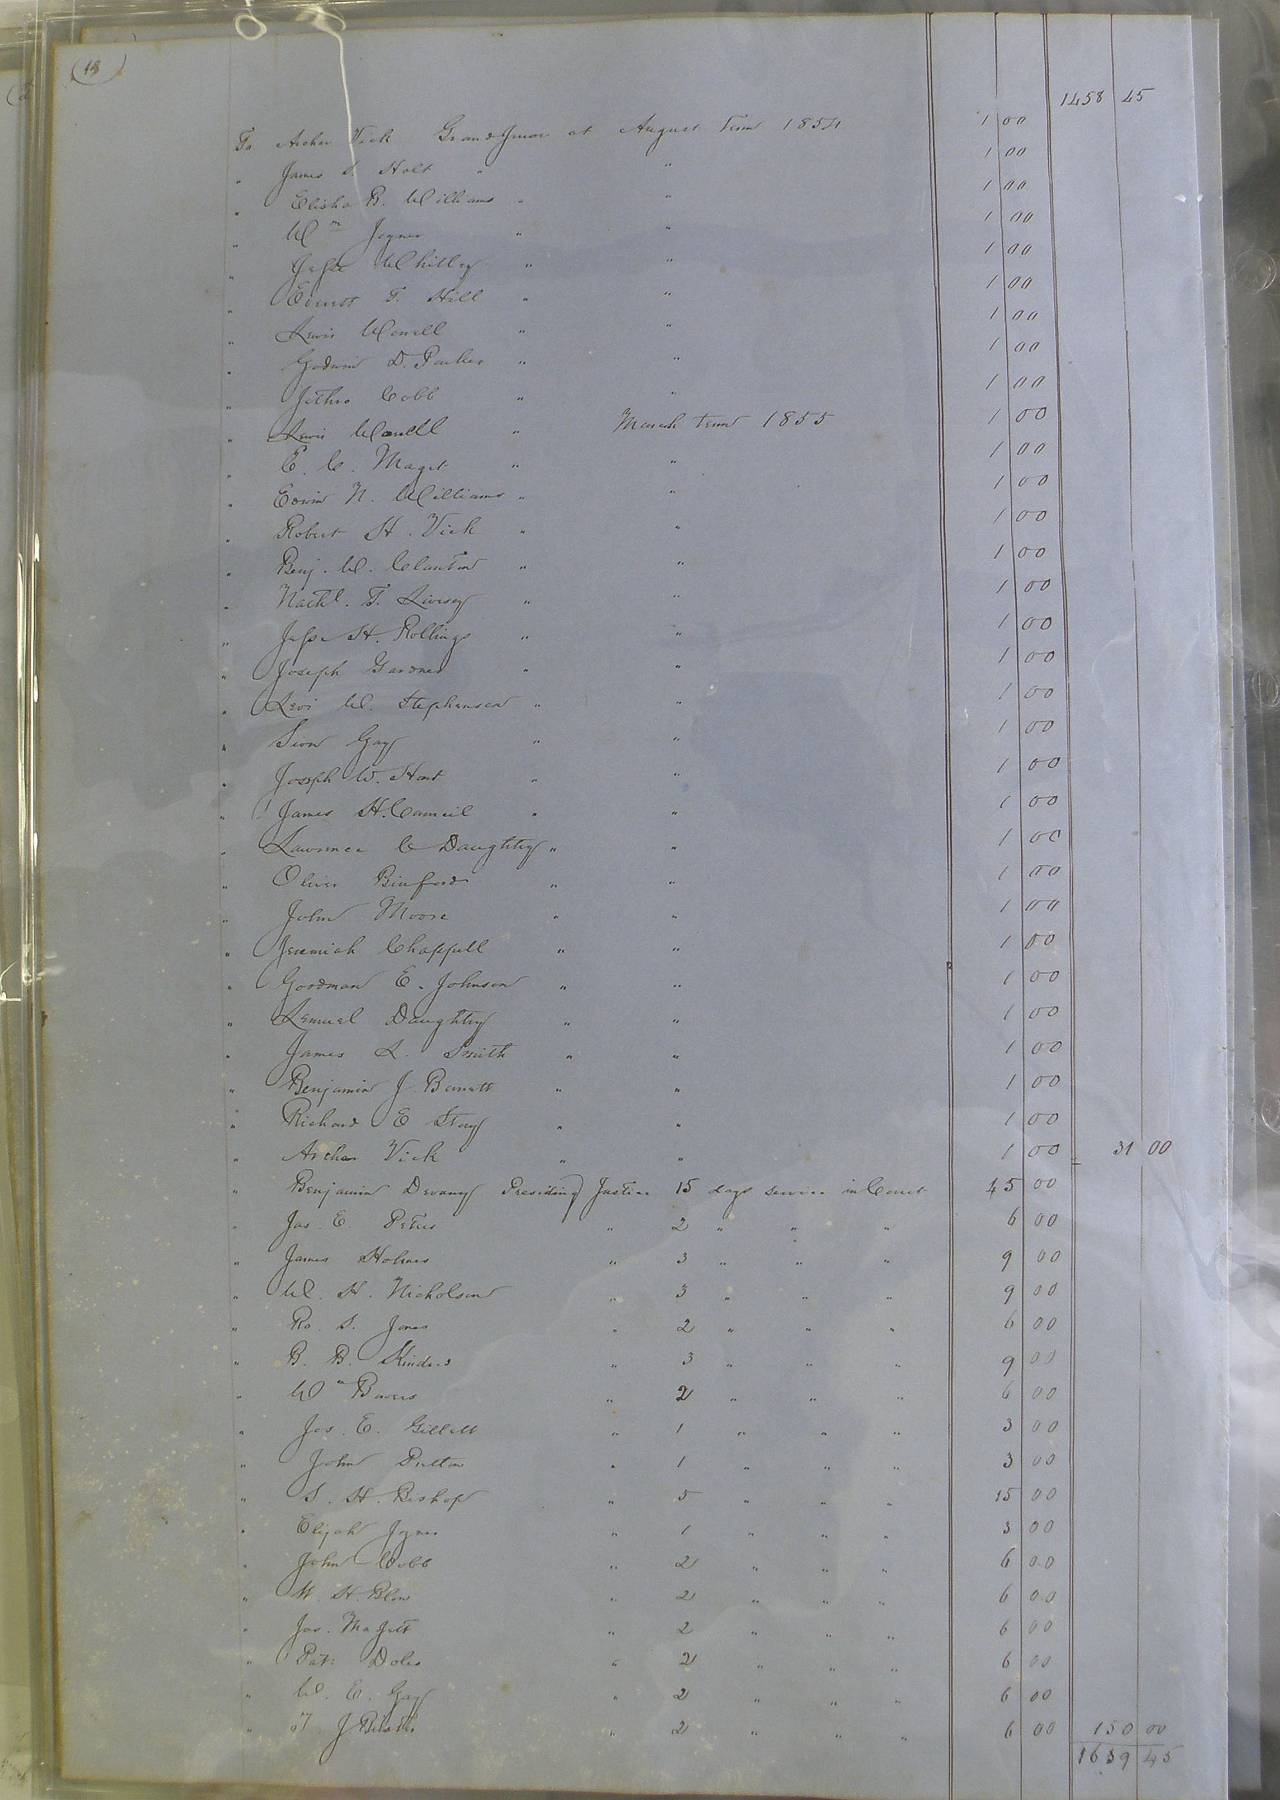 (13)
1458 45
To Archer Vick Grand Juror at August Term 1854 1 00
" James S. Holt " " 1 00
" Elisha B. Williams " " 1 00
" Wm Joyner " " 1 00
" Jesse Whitley " " 1 00
" T. Hill " " 1 00
" Lewis Worrell " " 1 00
" Godwin D. Parker " " 1 00
" Jethro Cobb " " 1 00
" Lewis Worrell " March Term 1855 1 00
" E. C. Maget " " 1 00
" Edwin N. Williams " " 1 00
" Robert H. Vick " " 1 00
" Benj. W. Clanton " " 1 00
" Nathl. T. Livesay " " 1 00
" Jesse H. Rollings " " 1 00
" Joseph Gardner " " 1 00
" Levi W. Stephenson " " 1 00
" Sion Gay " " 1 00
" Joseph W. Hart " " 1 00
" James H. Council " " 1 00
" Lawrence C Daughtry " " 1 00
" Oliver Binford " " 1 00
" John Moore " " 1 00
" Jeremiah Chappell " " 1 00
" Goodman E. Johnson " " 1 00
" Lemuel Daughtry " " 1 00
" James L. Smith " " 1 00
" Benjamin J. Barrett " " 1 00
" Richard E Story " " 1 00
" Archer Vick " " 1 00 31 00
" Benjamin Devany Presiding Justice 15 days service in Court 45 00
" Jas. E. Peters " 2 " " " 6 00
" James Holmes " 3 " " " 9 00
" W. H. Nicholson " 3 " " " 9 00
" Ro. S. Jones " 2 " " " 6 00
" B. B. Kindred " 3 " " " 9 00
" Wm Bowers " 2 " " " 6 00
" Jos. E. Gillett " 1 " " " 3 00
" John Pretlow " 1 " " " 3 00
" S. H. Bishop " 5 " " " 15 00
" Elijah Joyner " 1 " " " 3 00
" John Webb " 2 " " " 6 00
" H. Blow " 2 " " " 6 00
" Jas. Magett " 2 " " " 6 00
" Pat: Doles " 2 " " " 6 00
" W. E. Gay " 2 " " " 6 00
" J. " 2 " " " 6 00 150 00
1639 45